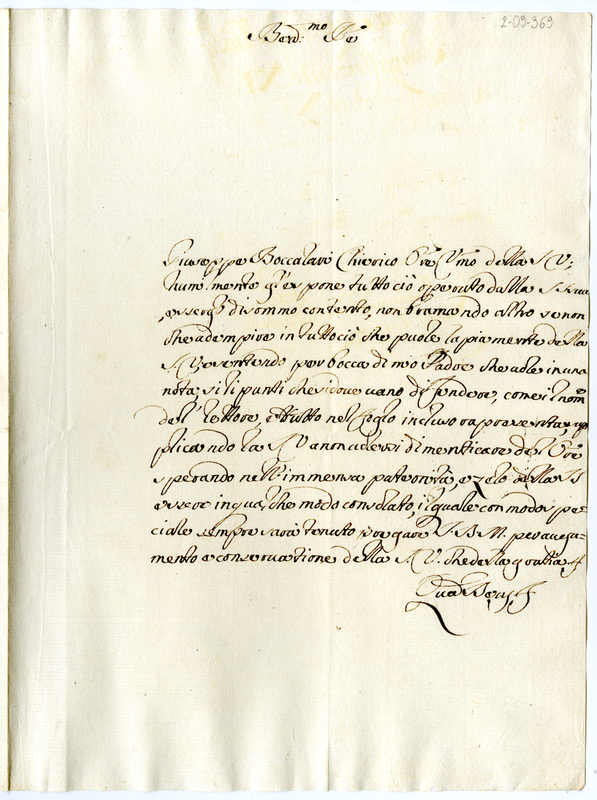 2-09-369
Rend.mo Pre
Giuseppe Boccalari Chierico Ore Vmo della S V:
humilmente gl'espone tutto ciò operato dalla S. sua
essergli di sommo contento, non bramando altro se non
che adempire in tutto ciò che puole la pia mente della
S. V. e sentendo per bocca di mio Padre che vole in una
nota; si li punti che si dovevano difendere, come il nom
del lettore, il tutto nel foglio incluso rapresenta, sup
plicando la S V a non a dimenticare del Ore
sperando nell'immensa paternità, e zelo della S
essere in qualche modo consolato, il quale con modo spe
ciale sempre sarà tenuto pregare S. D. M. per avega=
mento e conservatione della S. V. che della gratia
Qua Deus